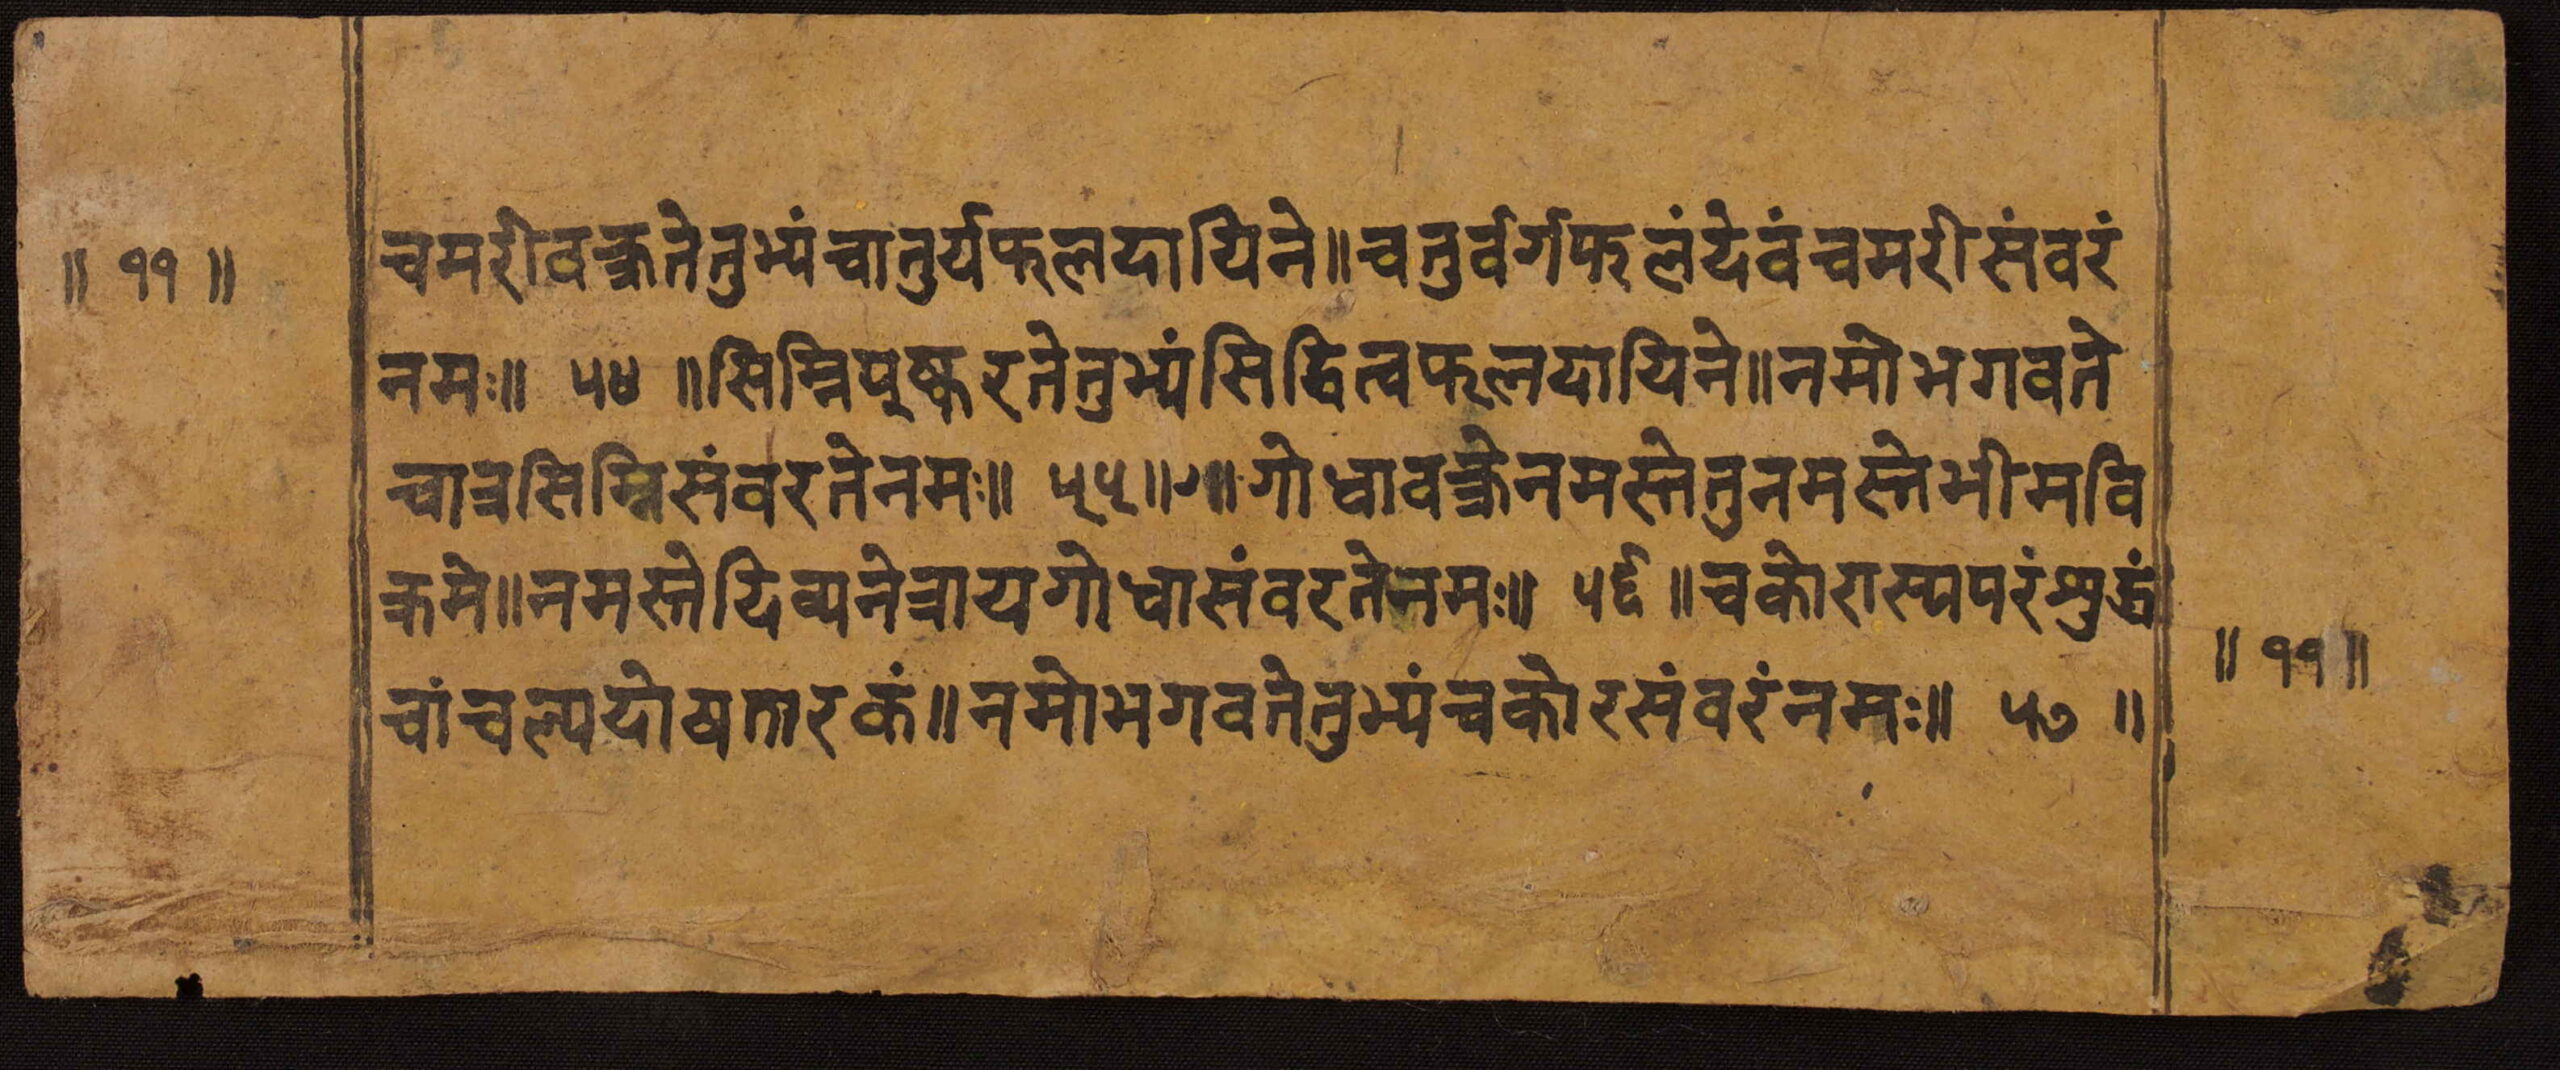 ॥ ११ ॥
चमरीवक्त्रतेतुभ्यंचातुर्यफलदायिने॥चतुर्वर्गफलंदेवंचमरीसंवरं
नमः॥ ५४ ॥सिम्निपुष्करतेतुभ्यंसिद्धित्वफलदायिने॥नमोभगवते
चात्रसिम्निसंवरतेनमः॥ ५५॥ गोधावक्त्रेनमस्तेतुनमस्तेभीमवि
क्रमे॥नमस्तेदिव्यनेत्रायगोधासंवरतेनमः॥ ५६ ॥चकोरास्यपरंशुद्धं
चांचल्यदोषतारकं॥नमोभगवतेतुभ्यंचकोरसंवरंनमः॥ ५७ ॥
॥ ११ ॥